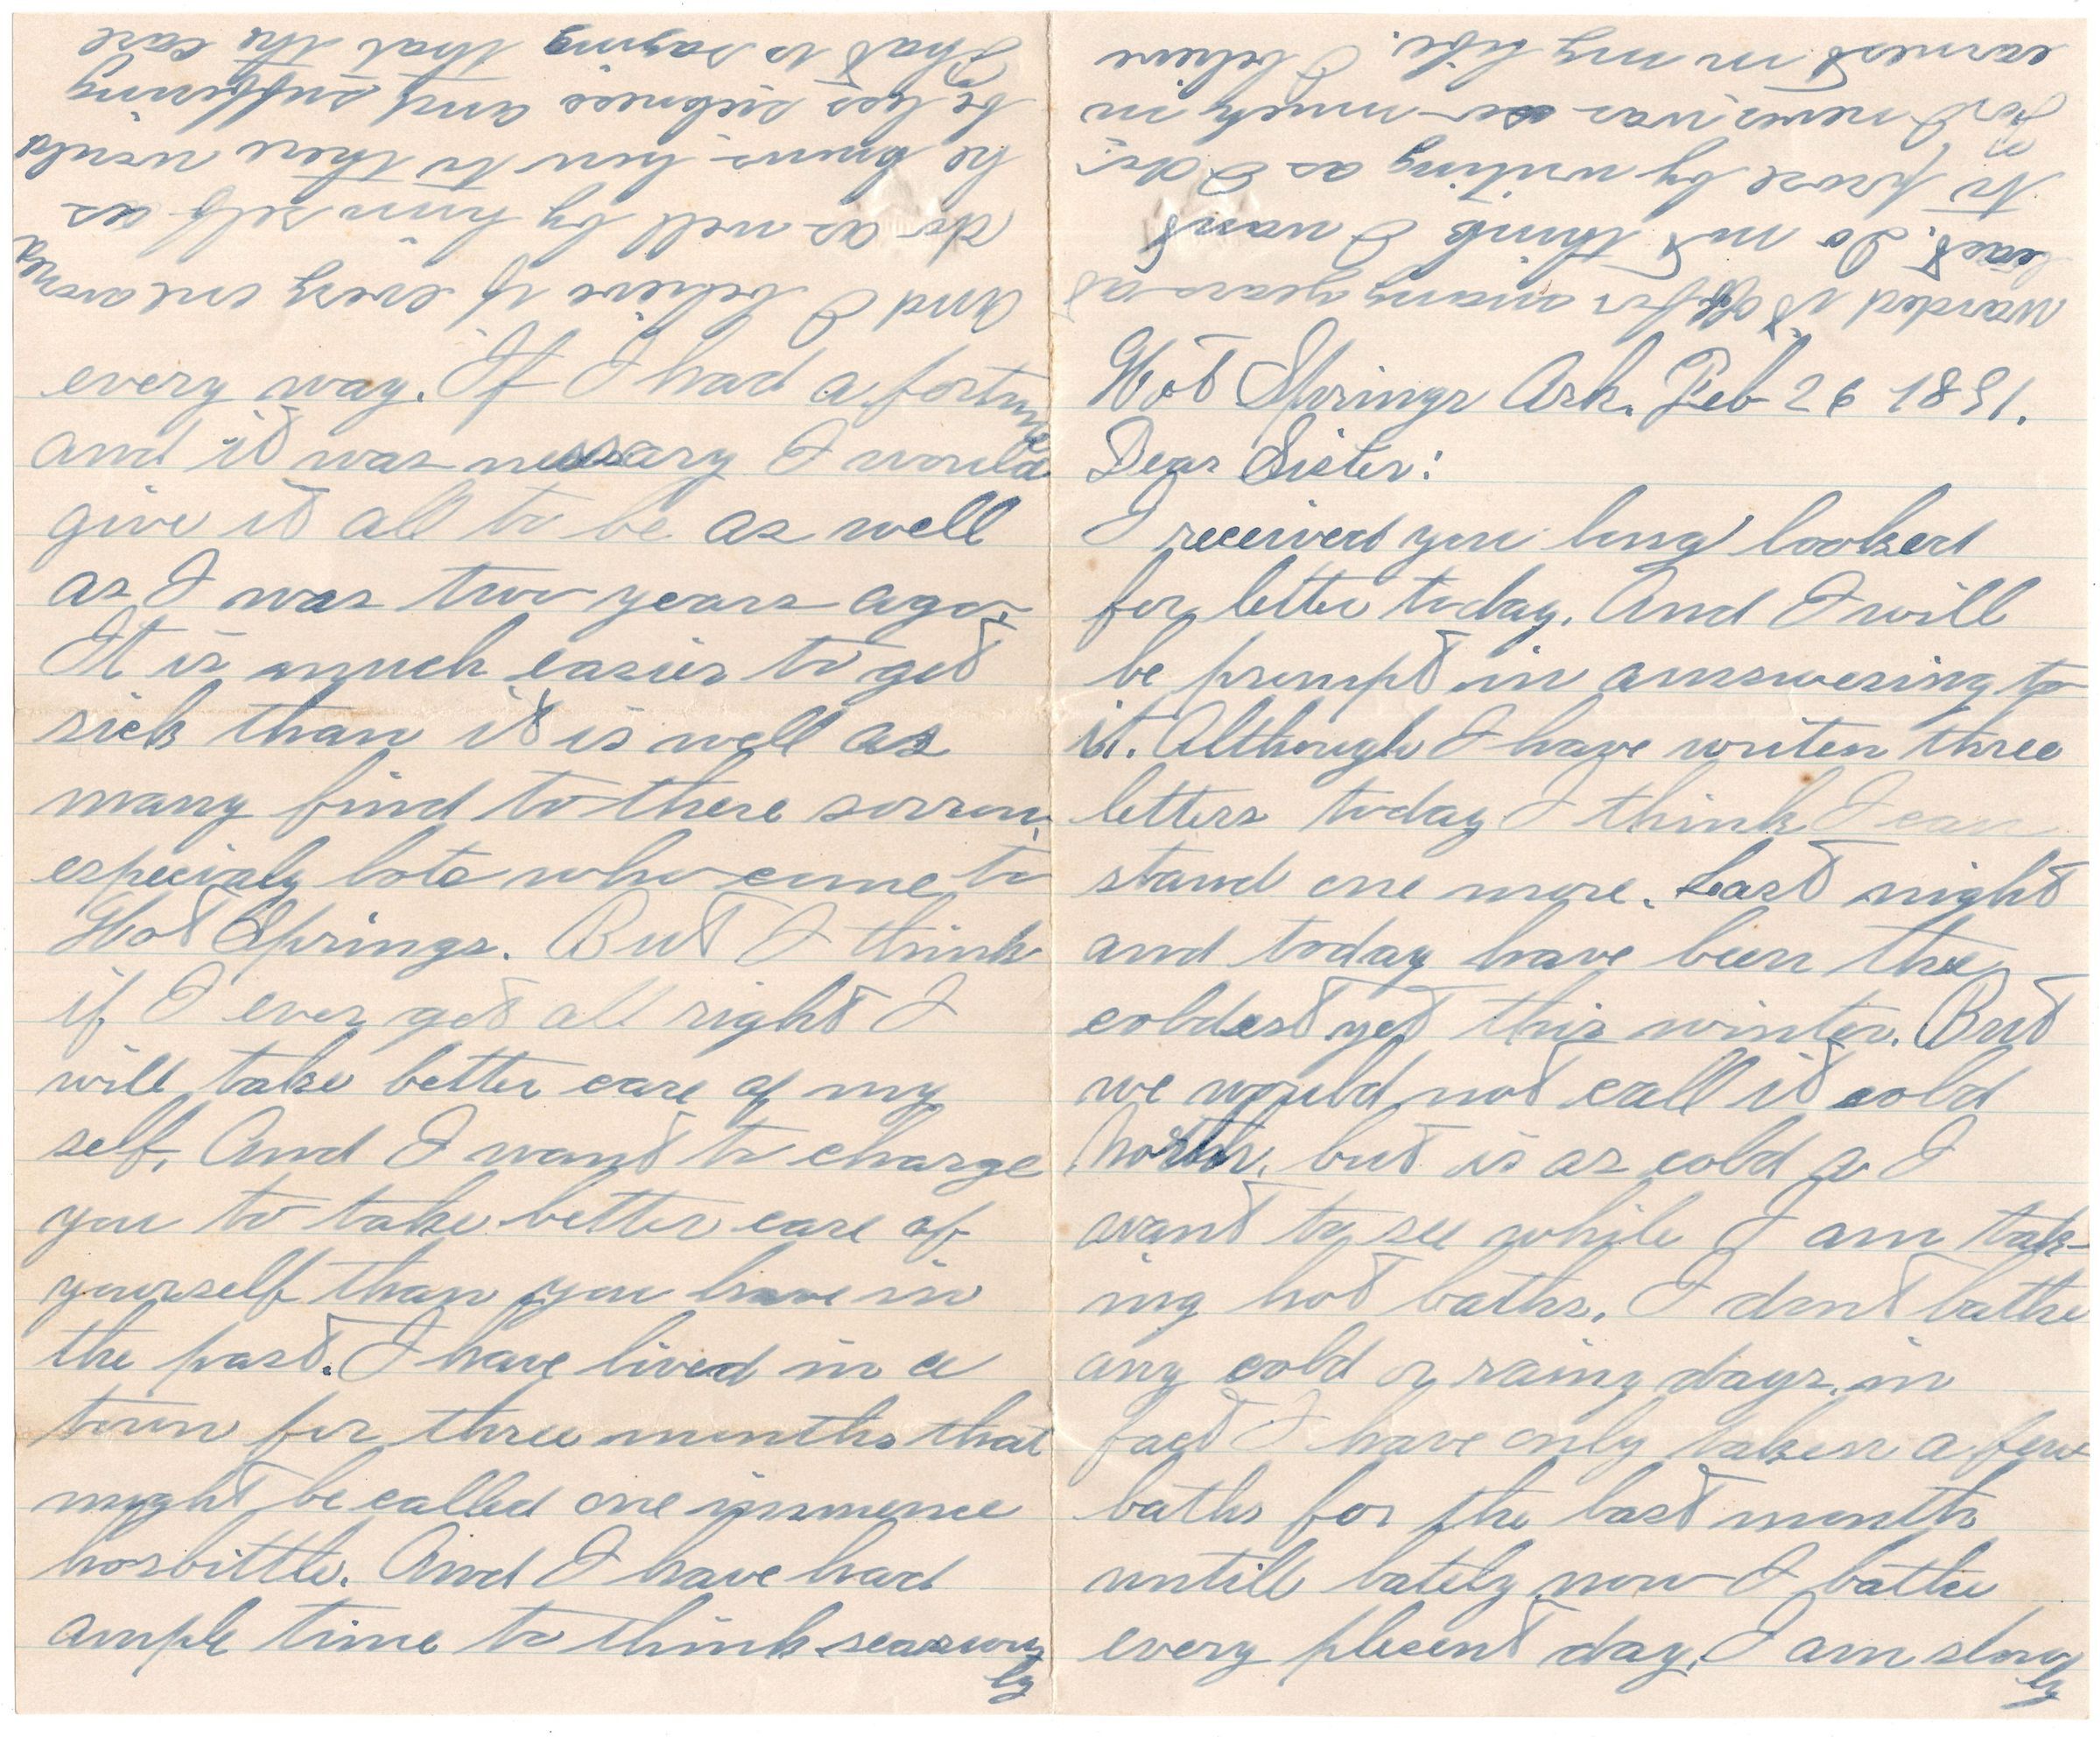 Hot Springs Ark. Feb 26 1891.
Dear Sister:
I received you long looked
for letter today. And I will
be prompt in answering to
it. Although I have writen three
letters today I think I can
stand one more. Last night
and today have been the
coldest yet this winter. But
we would not call it cold
North, but is as cold a I
want to see while I am tak-
ing hot baths. I dont bathe
any cold or rainy days. in
fact I have only taken a few
baths for the last month
untill lately now I bathe
every plesent day. I am slow
ly
every way. If I had a fortune
and it was nessary I would
give it all to be as well
as I was two years ago.
It is much easier to get
sick than it is well as
many find to there sorrow.
especialy lots who come to
Hot Springs. But I think
if I ever get all right I
will take better care of my
self. And I want to charge
you to take better care of
yourself than you have in
the past. I have lived in a
town for three months that
might be called one immence
hosbittle. And I have had
ample time to think
ly
And I believe if every one
do as well by him self as
he knows how to there would
be less sickness and suffering
That is saying that the care
warded it off for many years at
least. Do not think I want
to pose by writing as I do;
For I never was so much in
earnest in my life. I believe